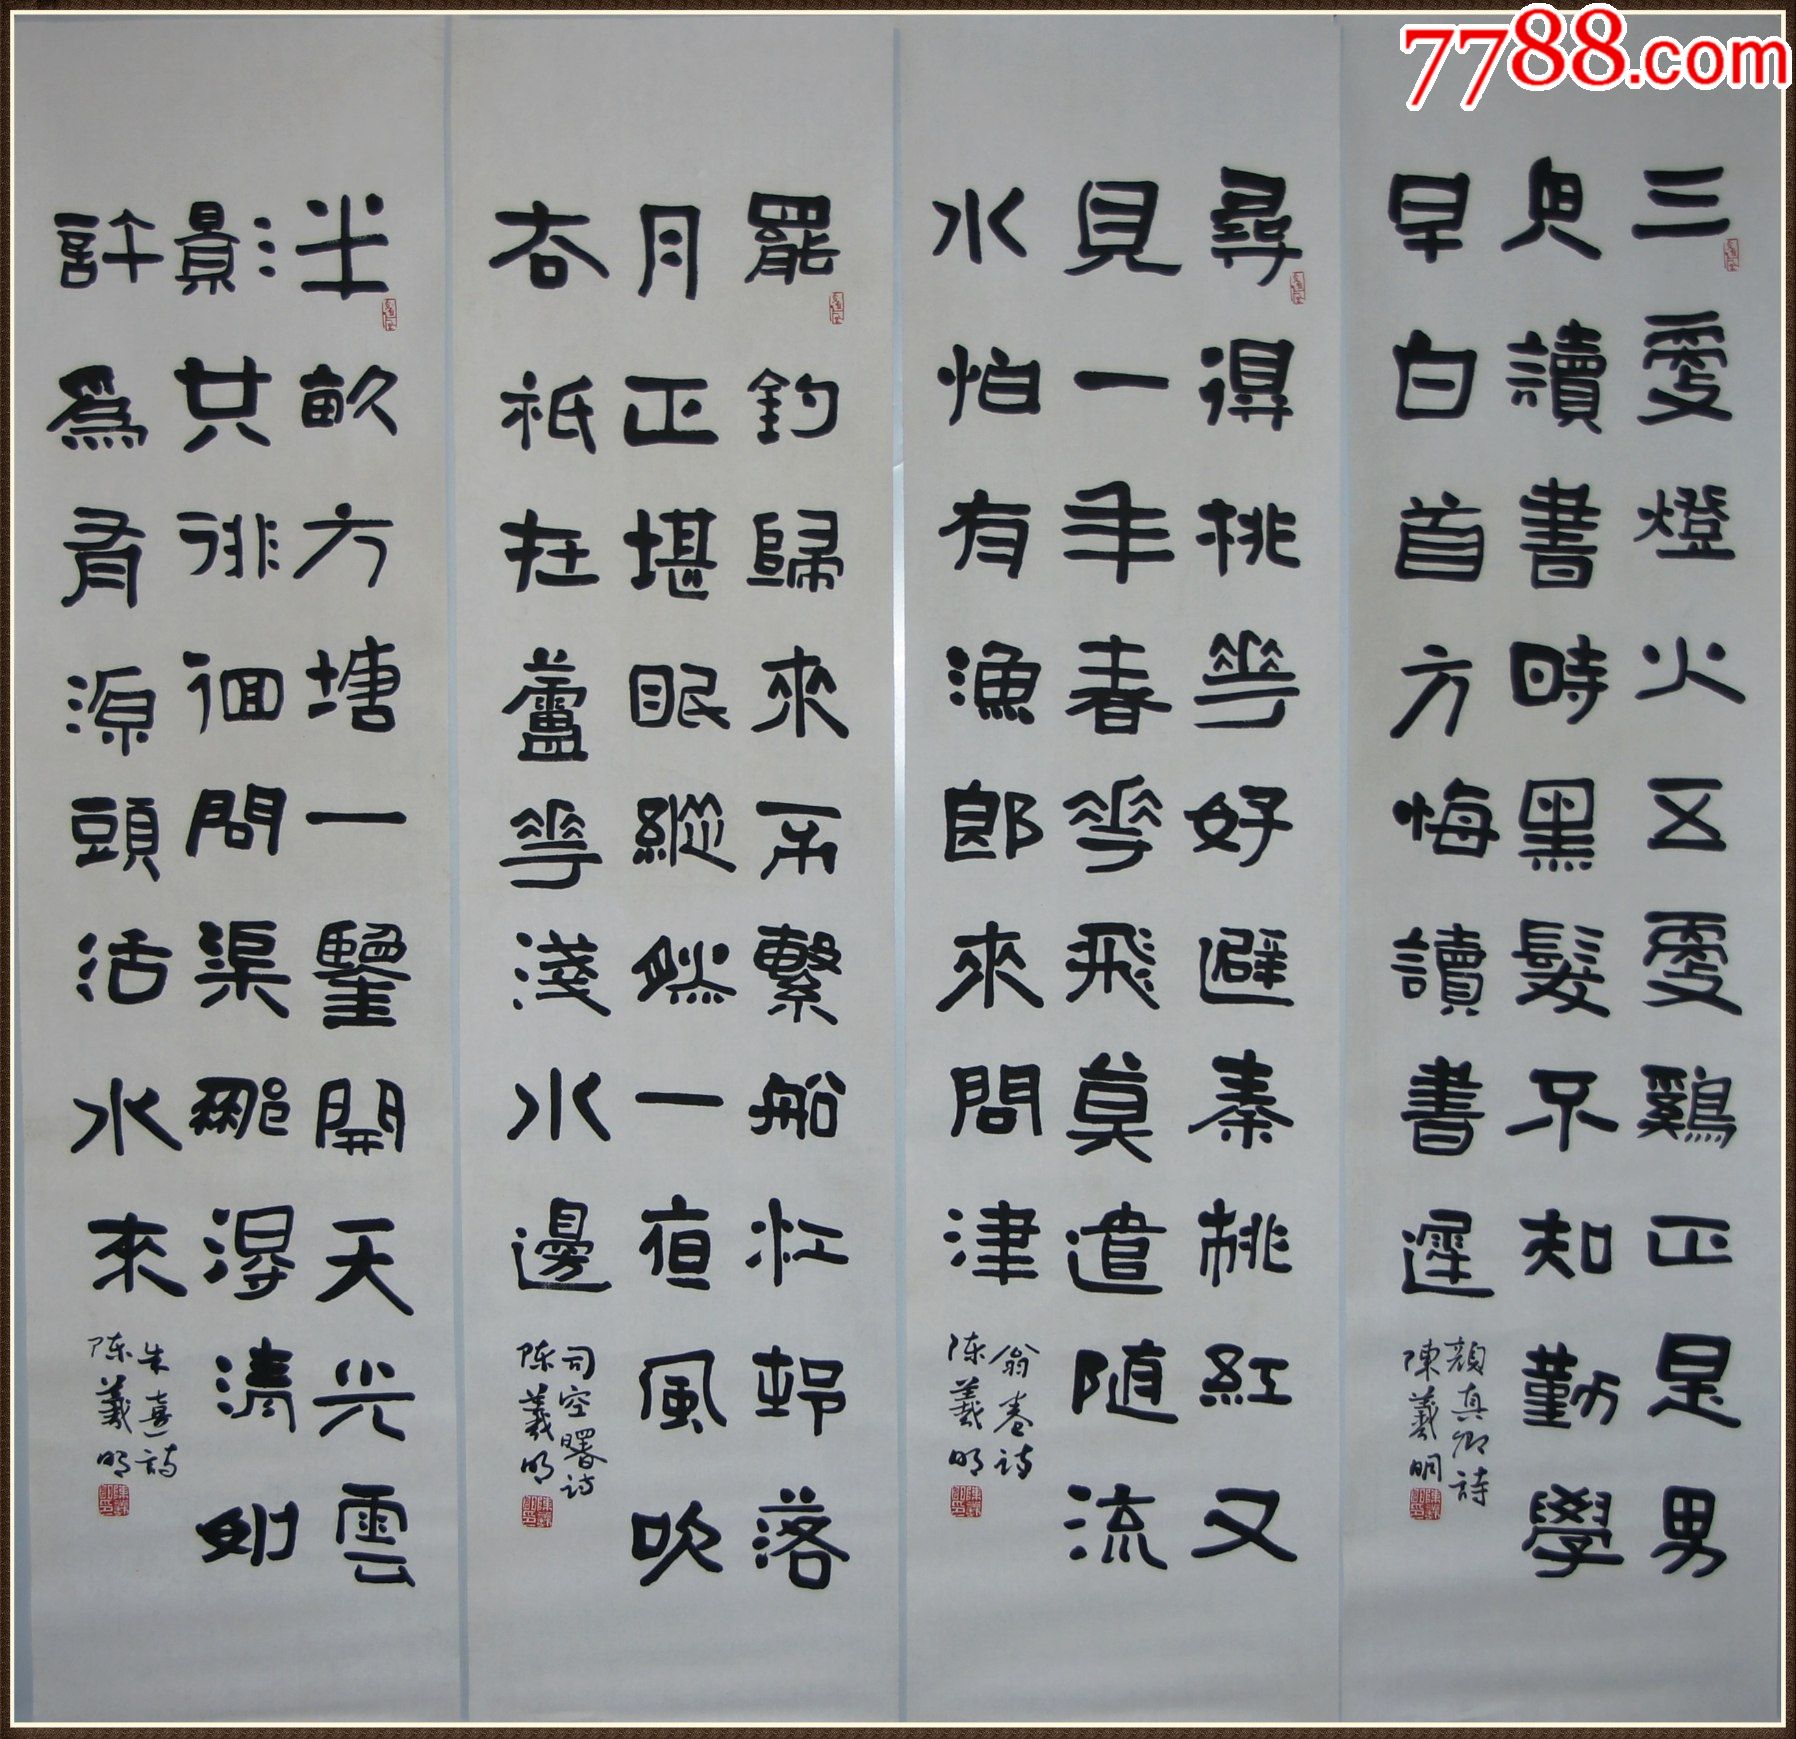 7788.com
三更燈火五更鷄正是男
兒讀書時黑髮不知勤學
早白首方悔讀書遲
顏真卿詩
陳羲明
尋得桃花好避秦桃紅又
見一年春花飛莫遣随流
水怕有漁郎來問津
翁卷诗
陈羲明
罷釣歸來不繫船江邨落
月正堪眠縱然一夜風吹
去祇在蘆花淺水邊
司空曙诗
陈羲明
半畝方塘一鑒開天光雲
影共徘徊問渠那得清如
許爲有源頭活水來
朱熹詩
陈羲明